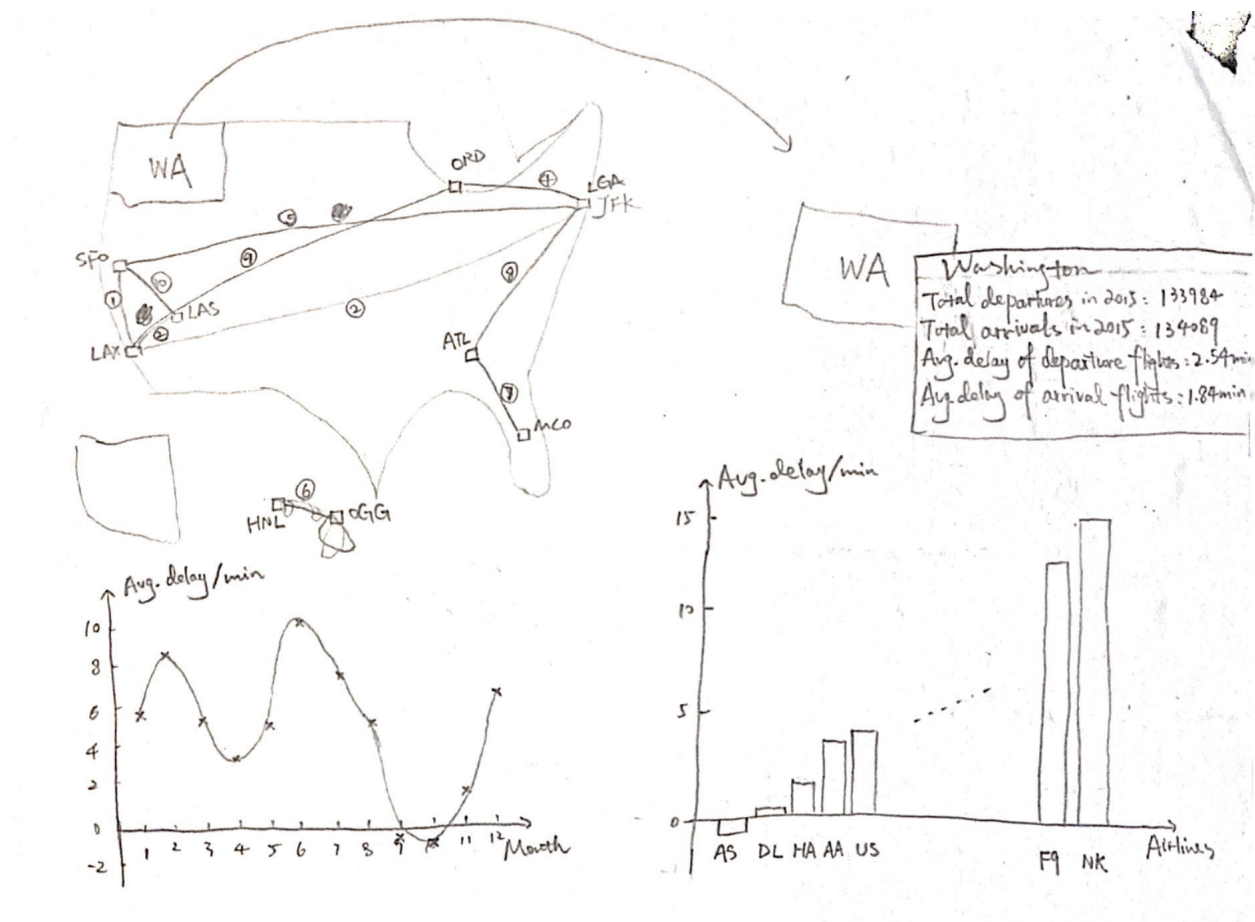 WA
ORD
④
LGA
JFK
⑤
SFO
⑨
⑩
⑧
①
LAS
②
②
LAX
ATL
⑦
MCO
⑥
HNL
OGG
WA
Washington
Total departures in 2015: 133984
Total arrivals in 2015: 134089
Avg. delay of departure flights: 2.54min
Avg delay of arrival flights: 1.84min
Avg. delay/min
10
8
6
4
2
0
-2
1 2 3 4 5 6 7 8 9 10 11 12 Month
Avg. delay/min
15
10
5
0
AS DL HA AA US F9 NK Airlines